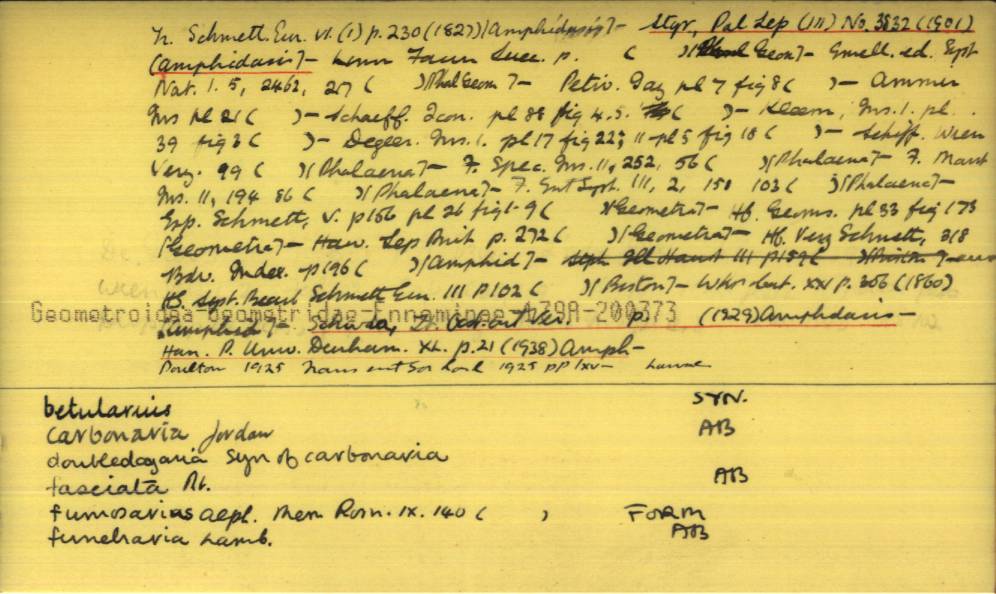 Tr. Schmett. Eur. VI. (1) p. 230 (1827) [Amphidasis] - Styr, Pal Lep (III) No. 3832 (1901)
(amphidasis] - Linn Faun Suec. p. ( )[ Geom] - Gmell. ed. Syst
Nat. 1. 5, 2462, 217 ( )[Phal Geom] - Petiv. Gaz pl 7 fig 8 ( ) - Ammir
Ins pl 21 ( ) - Schaeff. Icon. pl 88 fig 4.5. ( ) - Kleem, Ins. 1. pl.
39 fig 3 ( ) - Degeer. Ins. 1. pl 17 fig 22; 11 pl 5 fig 18 ( ) - Schiff. Wien
Verz. 99 ( )[Phalaena] - F. Spec. Ins. 11, 252, 56 ( )[Phalaena] - F. Mant
Ins. 11, 194 86 ( )[Phalaena] - F. Ent Syst. III, 2, 150 103 ( )[Phalaena] -
Esp. Schmett, V. p156 pl 26 fig 1-9 ( )[Geometra] - Hb. Geoms. pl 33 fig 173
[Geometra] - Haw. Lep Brit p. 272 ( )[Geometra] - Hb. Verz Schmett, 318
Bdv. Index. p196 ( )[Amphid] - Steph Ill Haust III p189 (
HS. Syst. Bearb Schmett Eur. III p102 ( )[Biston] - Wkr List. XXI p. 306 (1860)
Geometroidea Geometridae Ennominae 4.79A-200373
[Amphid] - p. (1929) Amphdasis -
Han. P. Univ. Durham. XL. p. 21 (1938) Amph -
Poulton 1925 Trans ent Soc Lond 1925 pp lxv - larvae
betularius SYN.
carbonaria Jordan AB
doubledayaria Syn of carbonaria
fasciata Pt. AB
fumosarias Aepl. Mem Rom. IX. 140 ( ) FORM
funebraria Lamb. AB